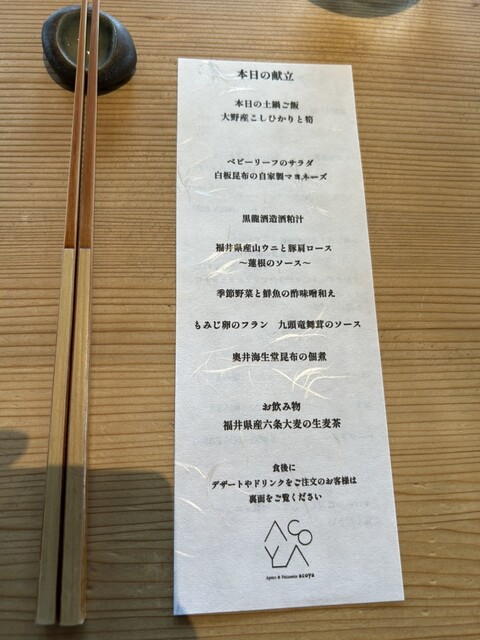 本日の献立
本日の土鍋ご飯
大野産こしひかりと筍
ベビーリーフのサラダ
白板昆布の自家製マヨネーズ
黒龍酒造酒粕汁
福井県産山ウニと豚肩ロース
～蓮根のソース～
季節野菜と鮮魚の酢味噌和え
もみじ卵のフラン 九頭竜舞茸のソース
奥井海生堂昆布の佃煮
お飲み物
福井県産六条大麦の生麦茶
食後に
デザートやドリンクをご注文のお客様は
裏面をご覧ください
ACOYA
Apéro & Pâtisserie acoya